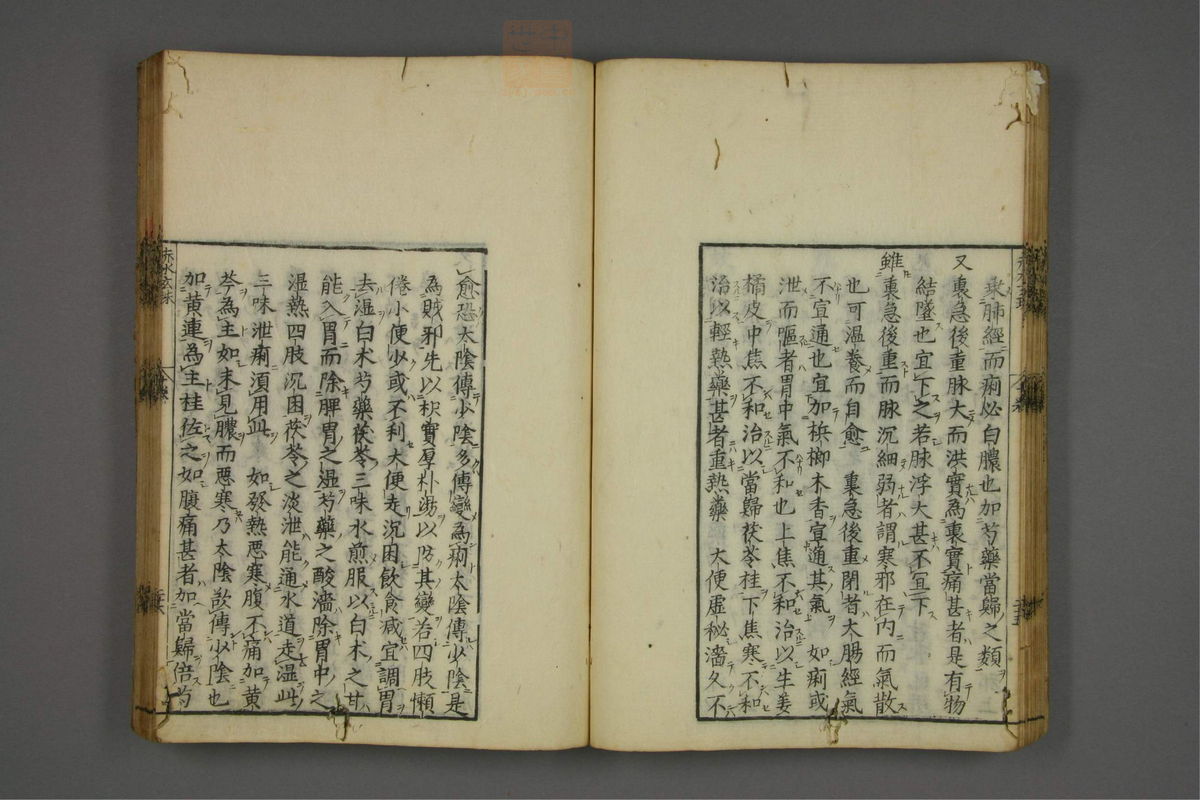 乗肺經而痢必白膿也加芍藥當歸之類
又裏急後重脉大而洪實為裏實痛甚者是有物
結墜也宜下之若脉浮大甚不宜下
雖裏急後重而脉沉細弱者謂寒邪在内而氣散
也可溫養而自愈 裏急後重閉者大腸經氣
不宣通也宜加梹榔木香宣通其氣 如痢或
泄而嘔者胃中氣不和也上焦不和治以生姜
橘皮中焦不和治以當歸茯苓桂下焦寒不和
治以輕熱藥甚者重熱藥 大便虚秘濇久不
愈恐太陰傳少陰多傳變為痢太陰傳少陰是
為賊邪先以枳實厚朴以防其變若四肢懶
倦小便少或不利大便走沉困飲食减宜調胃
去湿白朮芍藥茯苓三味水煎服以白朮之甘
能入胃而除脾胃之温芍藥之酸濇除胃中之
温熱四肢沉困茯苓之淡泄能通水道走温此
三味泄痢須用此 如發熱惡寒腹不痛加黄
芩為主如未見膿而惡寒乃太陰欲傳少陰也
加黄連為主桂佐之如腹痛甚者加當歸倍芍
赤水玄珠